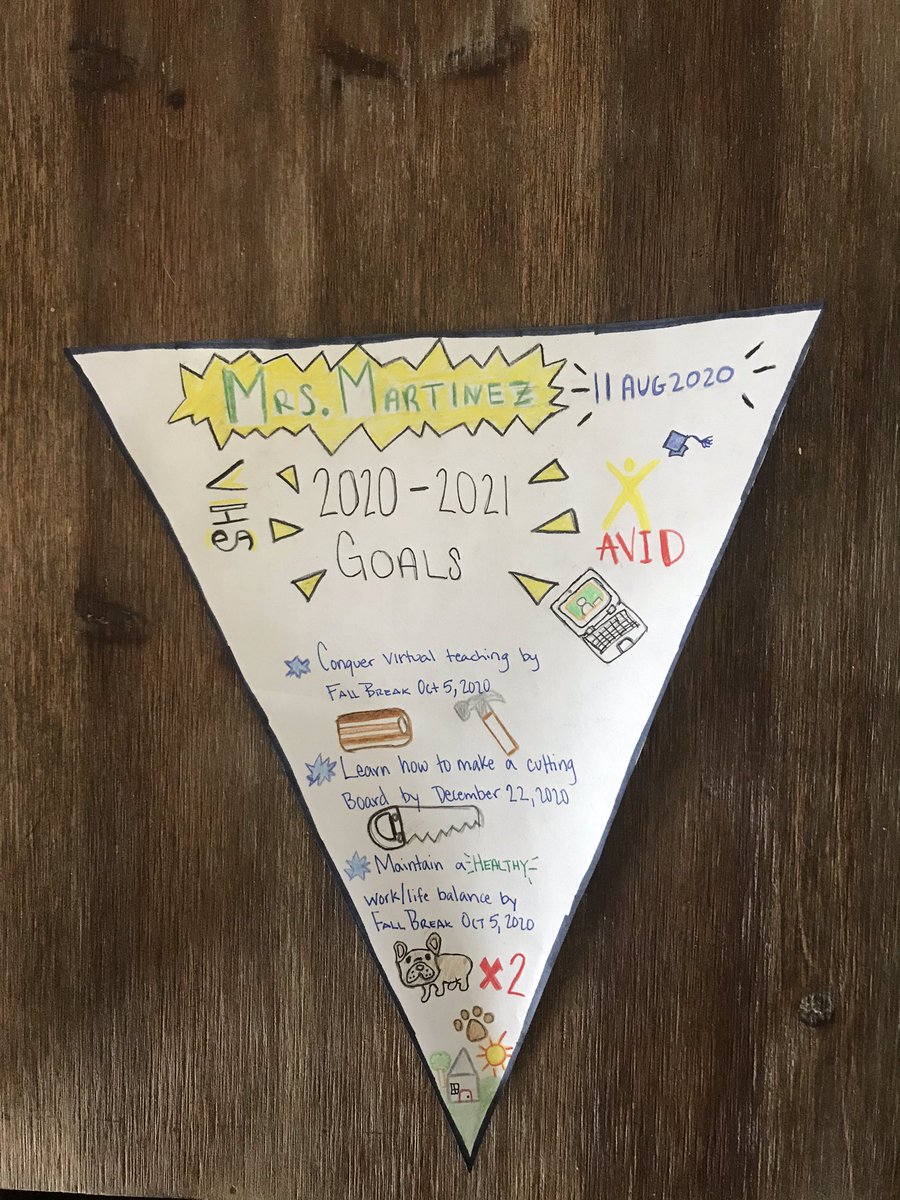 MRS. MARTINEZ
11 AUG 2020
VIHS
2020-2021
GOALS
AVID
Conquer virtual teaching by
FALL BREAK Oct 5, 2020
Learn how to make a cutting
Board by December 22, 2020
Maintain a HEALTHY
work/life balance by
FALL BREAK OCT 5, 2020
x2